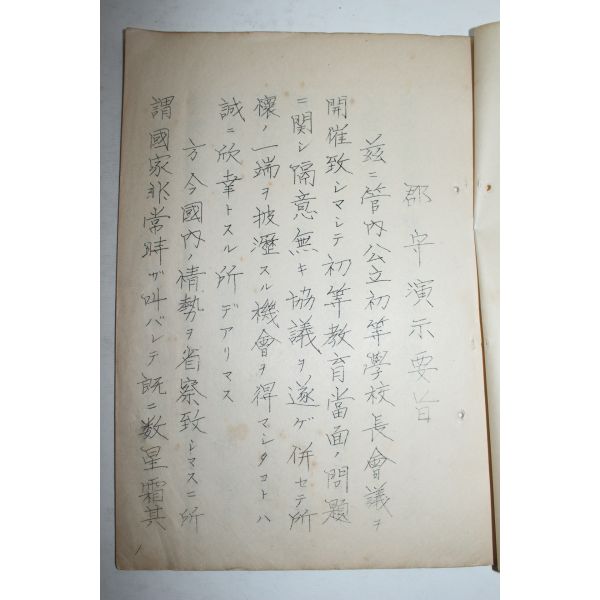 郡守演示要旨
玆ニ管内公立初等學校長會議ヲ
開催致シマシテ初等教育當面ノ問題
ニ関シ隔意無キ協議ヲ遂ゲ併セテ所
懐ノ一端ヲ披瀝スル機會ヲ得マシタコトハ
誠ニ欣幸トスル所デアリマス
方今國內ノ情勢ヲ省察致シマスニ所
謂國家非常時ガ叫バレテ既ニ数星霜其